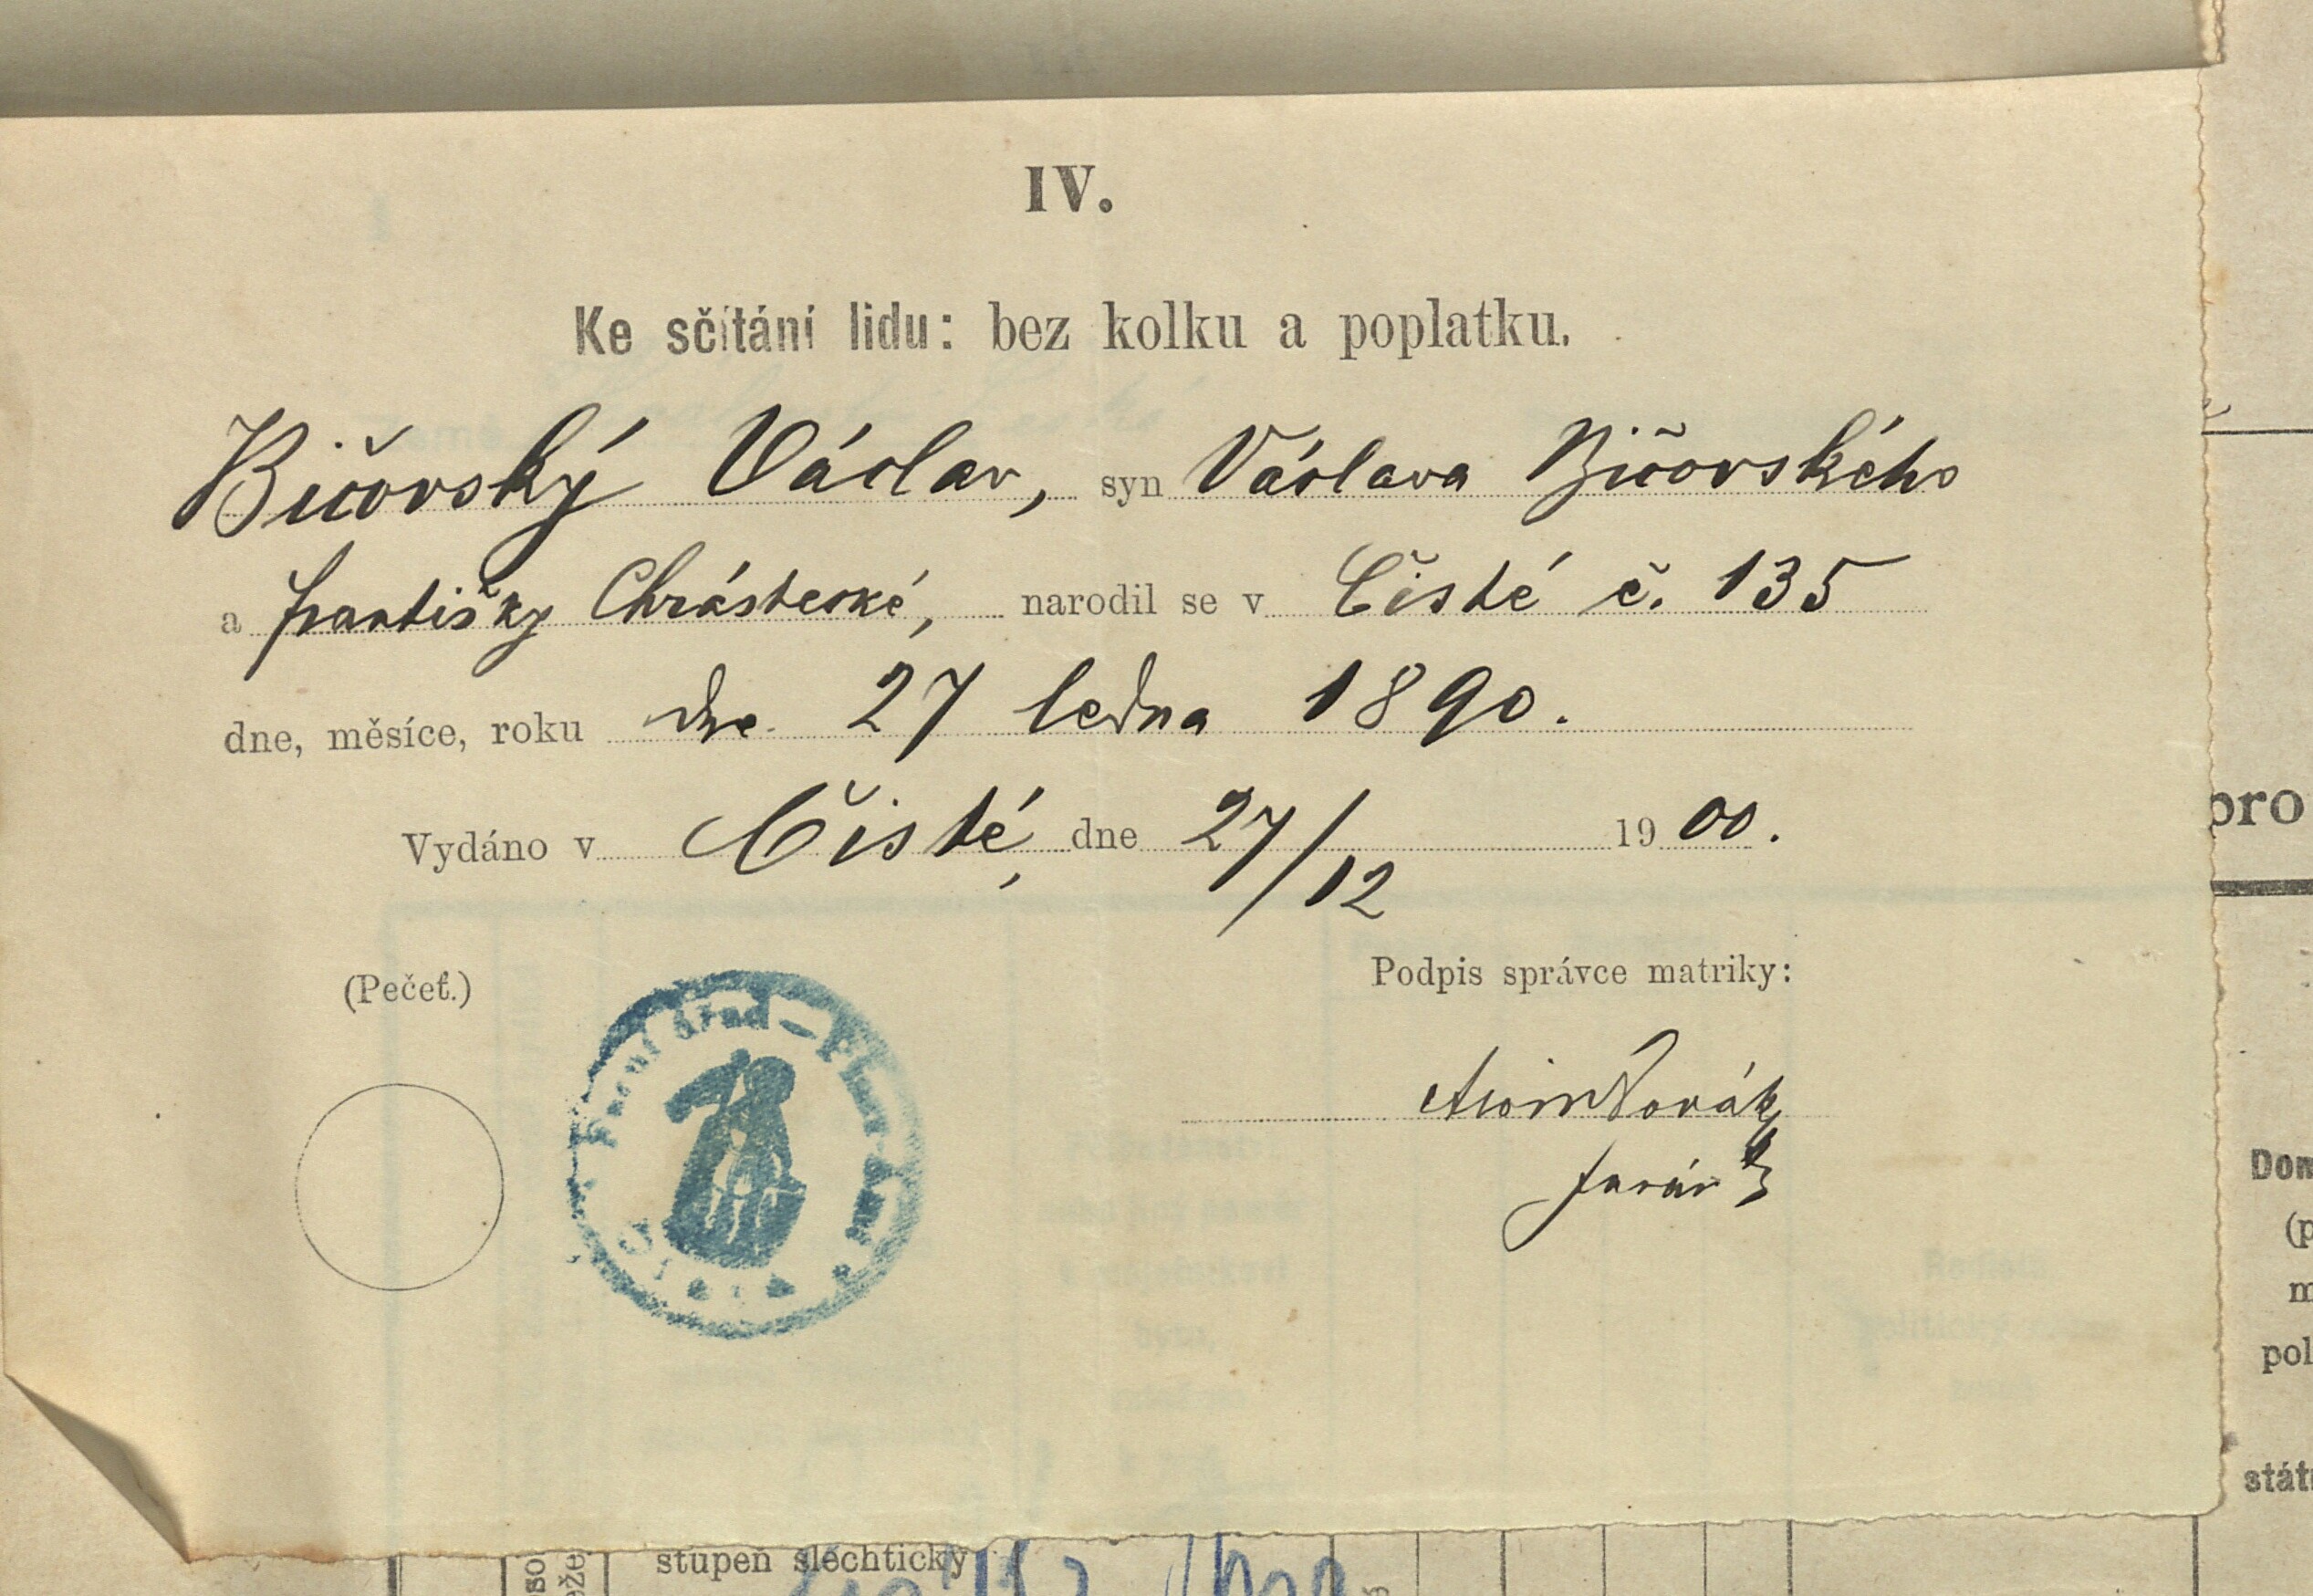 IV.
Ke sčítání lidu: bez kolku a poplatku.
Bičovský Václav, syn Václava Bičovského
a Františky Chrástecké, narodil se v Čisté č. 135
dne, měsíce, roku dne 27 ledna 1890.
Vydáno v Čisté, dne 27/12 1900.
(Pečeť.)
Farní úřad
Čistá
Podpis správce matriky:
Novák
farář
pro
stupeň šlechtický